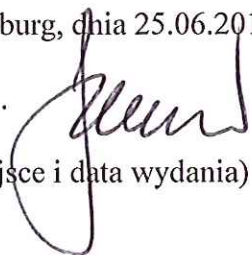 burg, dnia 25.06.201
.
jsce i data wydania)